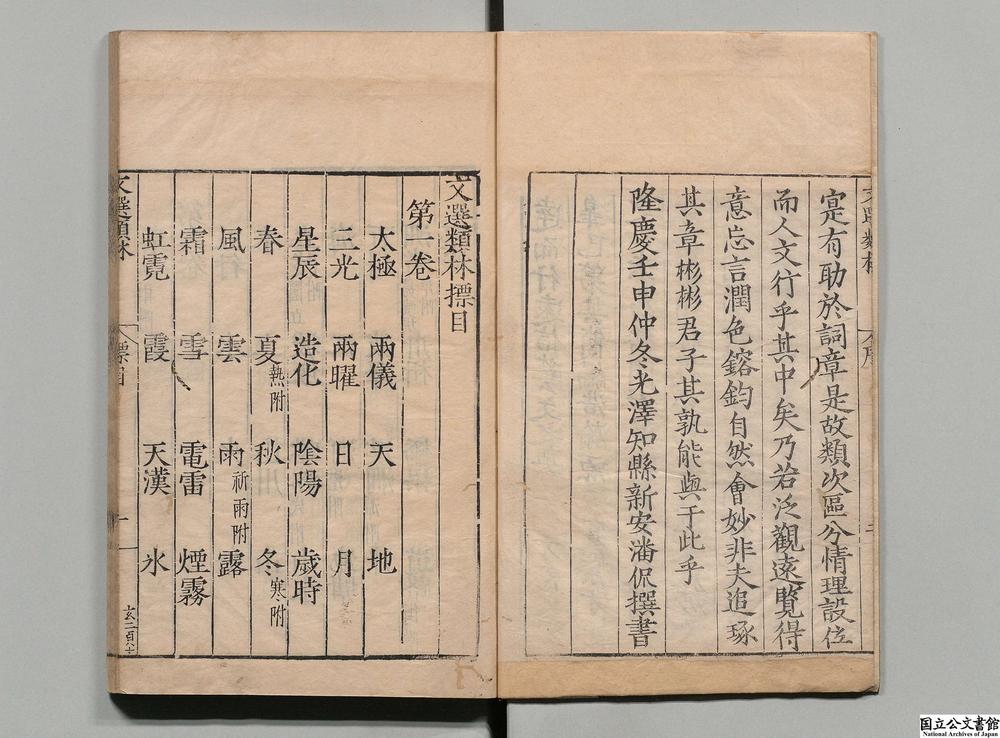 寔有助於詞章是故類次區分情理設位
而人文行乎其中矣乃若泛觀遠覽得
意忘言潤色鎔鈞自然會妙非夫追琢
其章彬彬君子其孰能與于此乎
隆慶壬申仲冬光澤知縣新安潘侃撰書
文選類林摽目
第一卷
太極 兩儀 天 地
三光 兩曜 日 月
星辰 造化 陰陽 歲時
春 夏熱附 秋 冬寒附
風 雲 雨祈雨附 露
霜 雪 電雷 煙霧
虹霓 霞 天漢 氷
文選類林
國立公文書館
National Archives of Japan